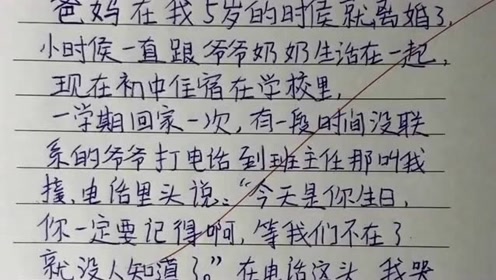 爸妈在我5岁的时候就离婚了,
小时侯一直跟爷爷奶奶生活在一起,
现在初中住宿在学校里,
一学期回家一次,有一段时间没联
系的爷爷打电话到班主任那叫我
接,电话里头说:“今天是你生日,
你一定要记得啊,等我们不在了
就没人知道了。”在电话这头,我哭